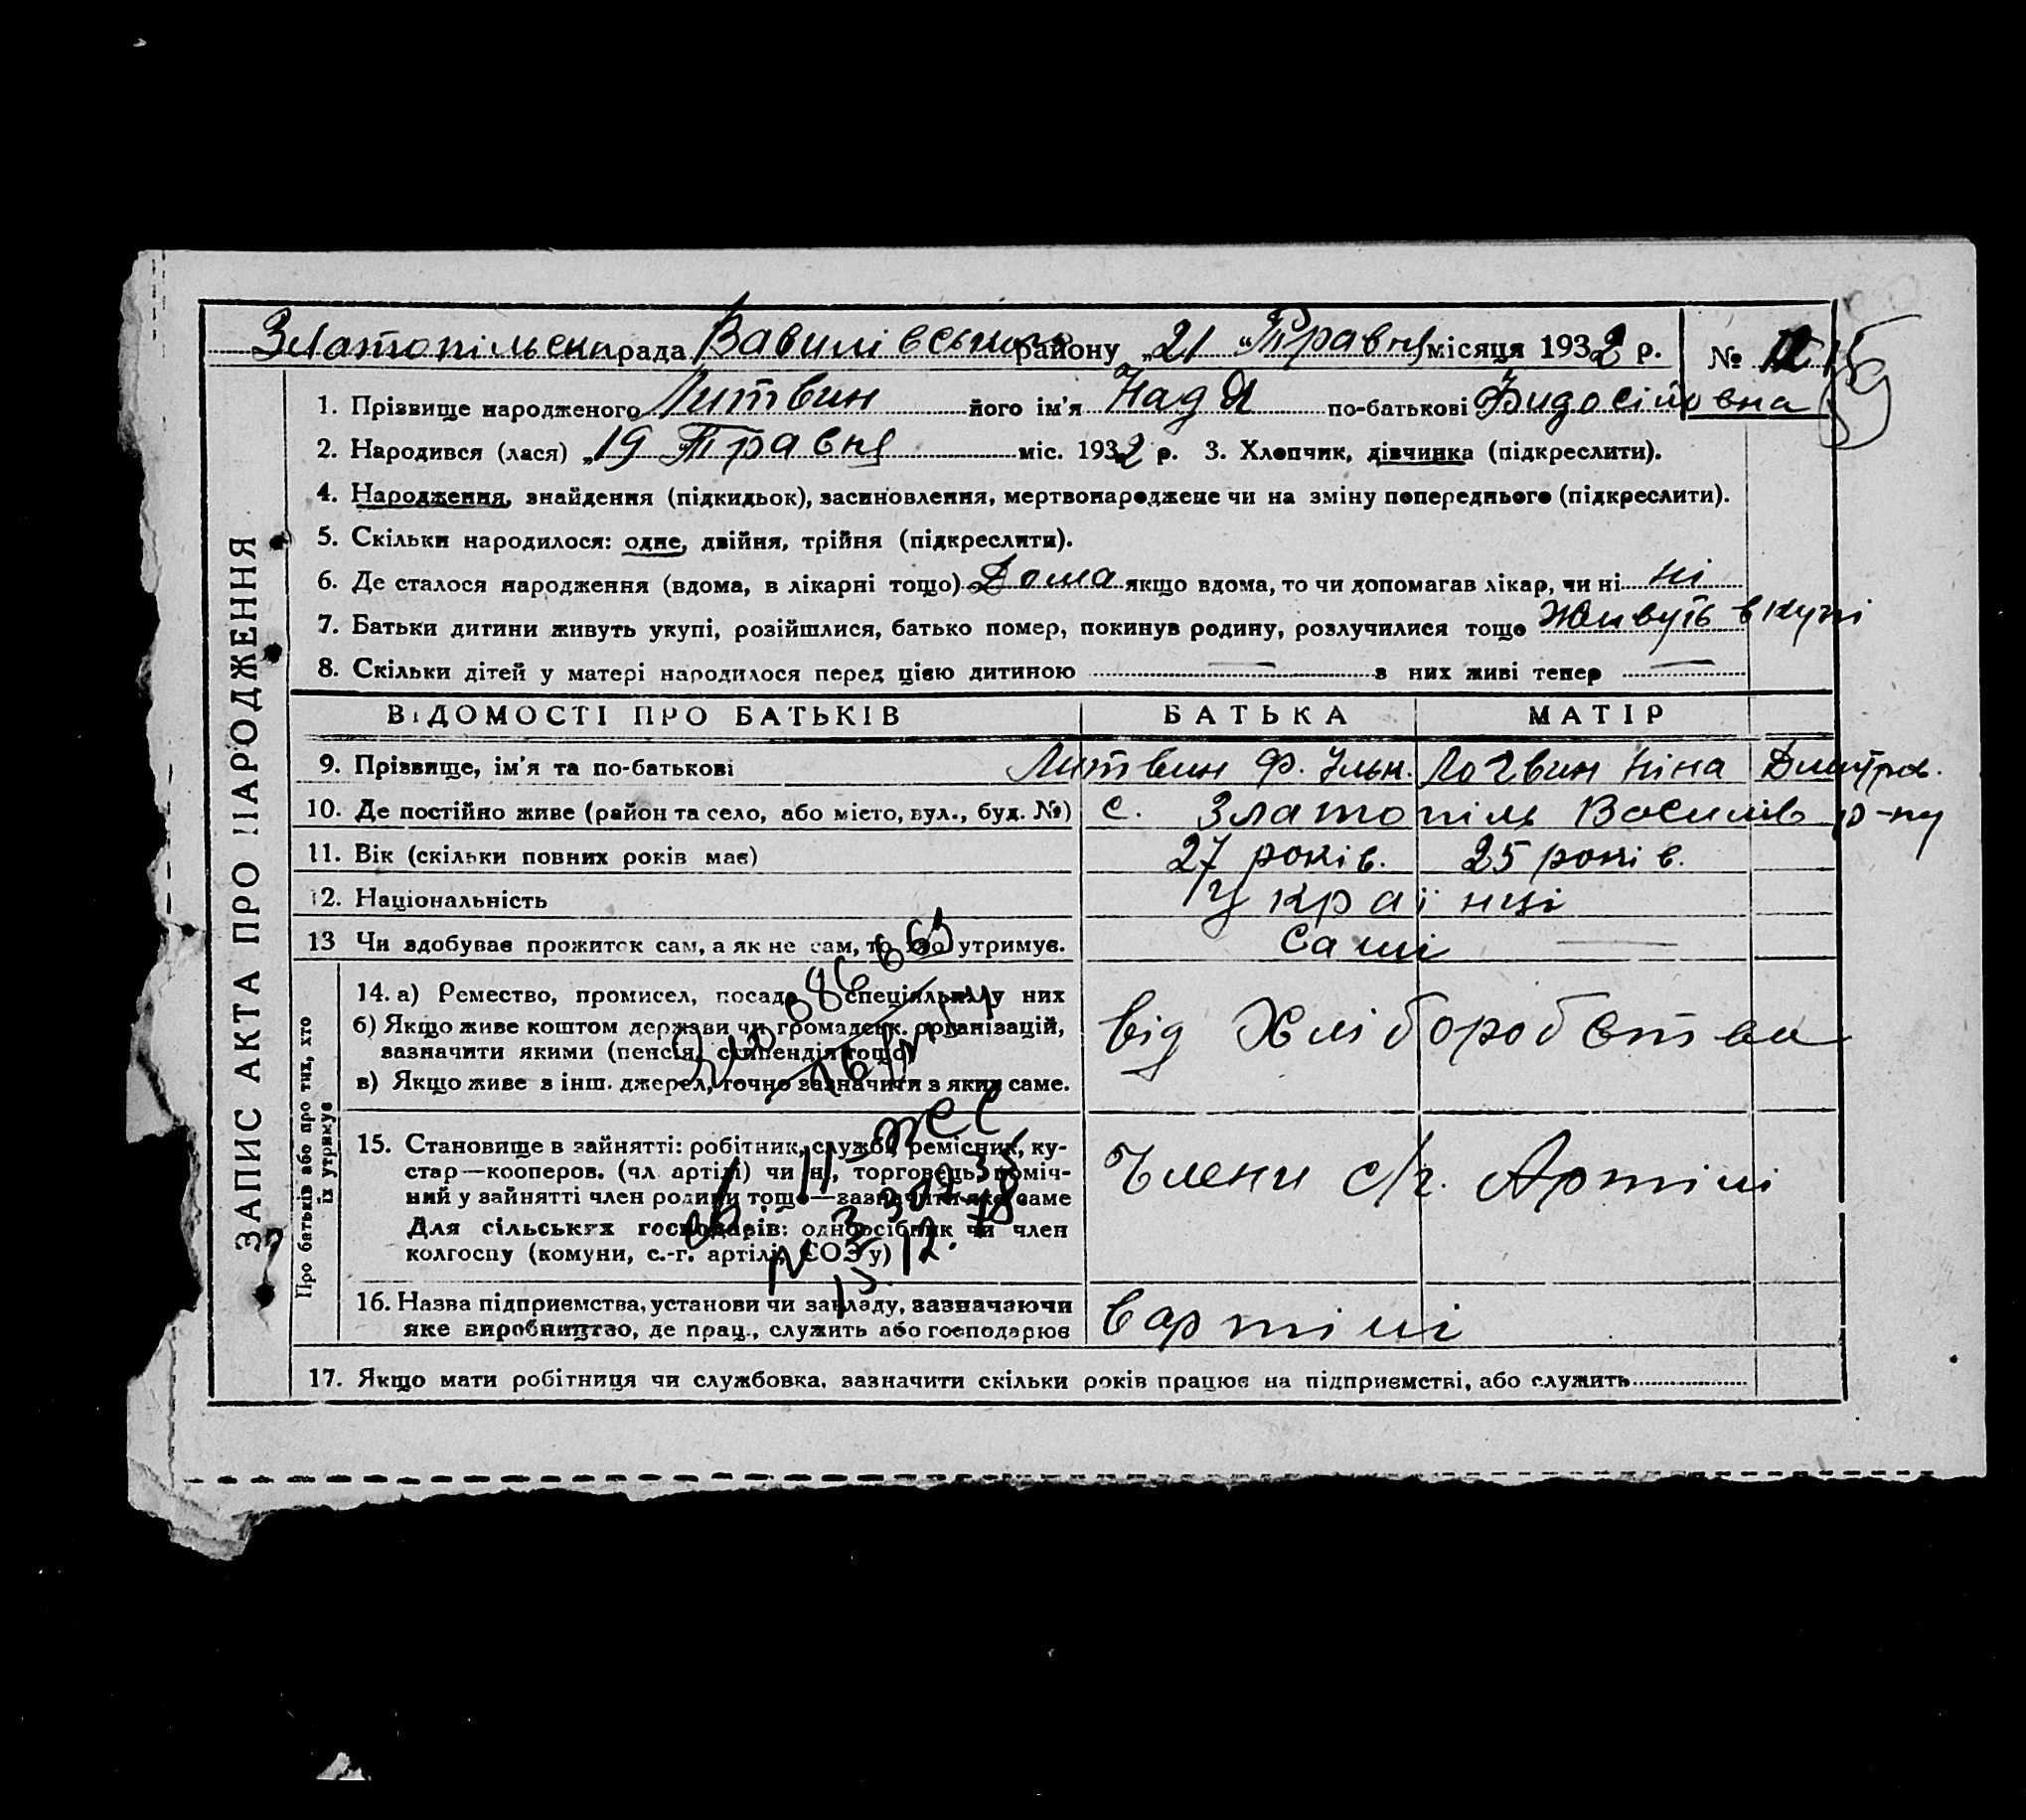 Златопільська рада Василівського району „21 “ Травня місяця 1932 р. № 12
1. Прізвище народженого Литвин його ім'я Надя по-батькові Фидосійовна
2. Народився (лася) „19 “ Травня міс. 1932 р. 3. Хлопчик, дівчинка (підкреслити).
4. Народження, знайдення (підкидьок), засиновлення, мертвонароджене чи на зміну попереднього (підкреслити).
5. Скільки народилося: одне, двійня, трійня (підкреслити).
6. Де сталося народження (вдома, в лікарні тощо) Дома якщо вдома, то чи допомагав лікар, чи ні ні
7. Батьки дитини живуть укупі, розійшлися, батько помер, покинув родину, розлучилися тощо Живуть вкупі
8. Скільки дітей у матері народилося перед цією дитиною — з них живі тепер —
ВІДОМОСТІ ПРО БАТЬКІВ БАТЬКА МАТІР
9. Прізвище, ім'я та по-батькові Литвин Ф. Ільк. Логвин Ніна Дмитров.
10. Де постійно живе (район та село, або місто, вул., буд. №) с. Златопіль Василів р-ну
11. Вік (скільки повних років має) 27 років. 25 років.
12. Національність Українці
13 Чи здобуває прожиток сам, а як не сам, то хто утримує. Самі —
14. а) Ремество, промисел, посада, спеціяльн. у них
б) Якщо живе коштом держави чи громадськ. організацій,
зазначити якими (пенсія, стипендія тощо)
в) Якщо живе з інш. джерел, точно зазначити з яких саме.
від Хліборобства
15. Становище в зайнятті: робітник, служб., ремісник, ку-
стар—кооперов. (чл. артілі) чи ні, торговець, поміч-
ний у зайнятті член родини тощо—зазначити яке саме
Для сільських господарів: одноосібник чи член
колгоспу (комуни, с.-г. артілі, СОЗ'у)
Члени с/г. Артілі
16. Назва підприємства, установи чи закладу, зазначаючи
яке виробництво, де прац., служить або господарює
в артілі
17. Якщо мати робітниця чи службовка, зазначити скільки років працює на підприємстві, або служить
ЗАПИС АКТА ПРО НАРОДЖЕННЯ
Про батьків або про тих, хто
їх утримує